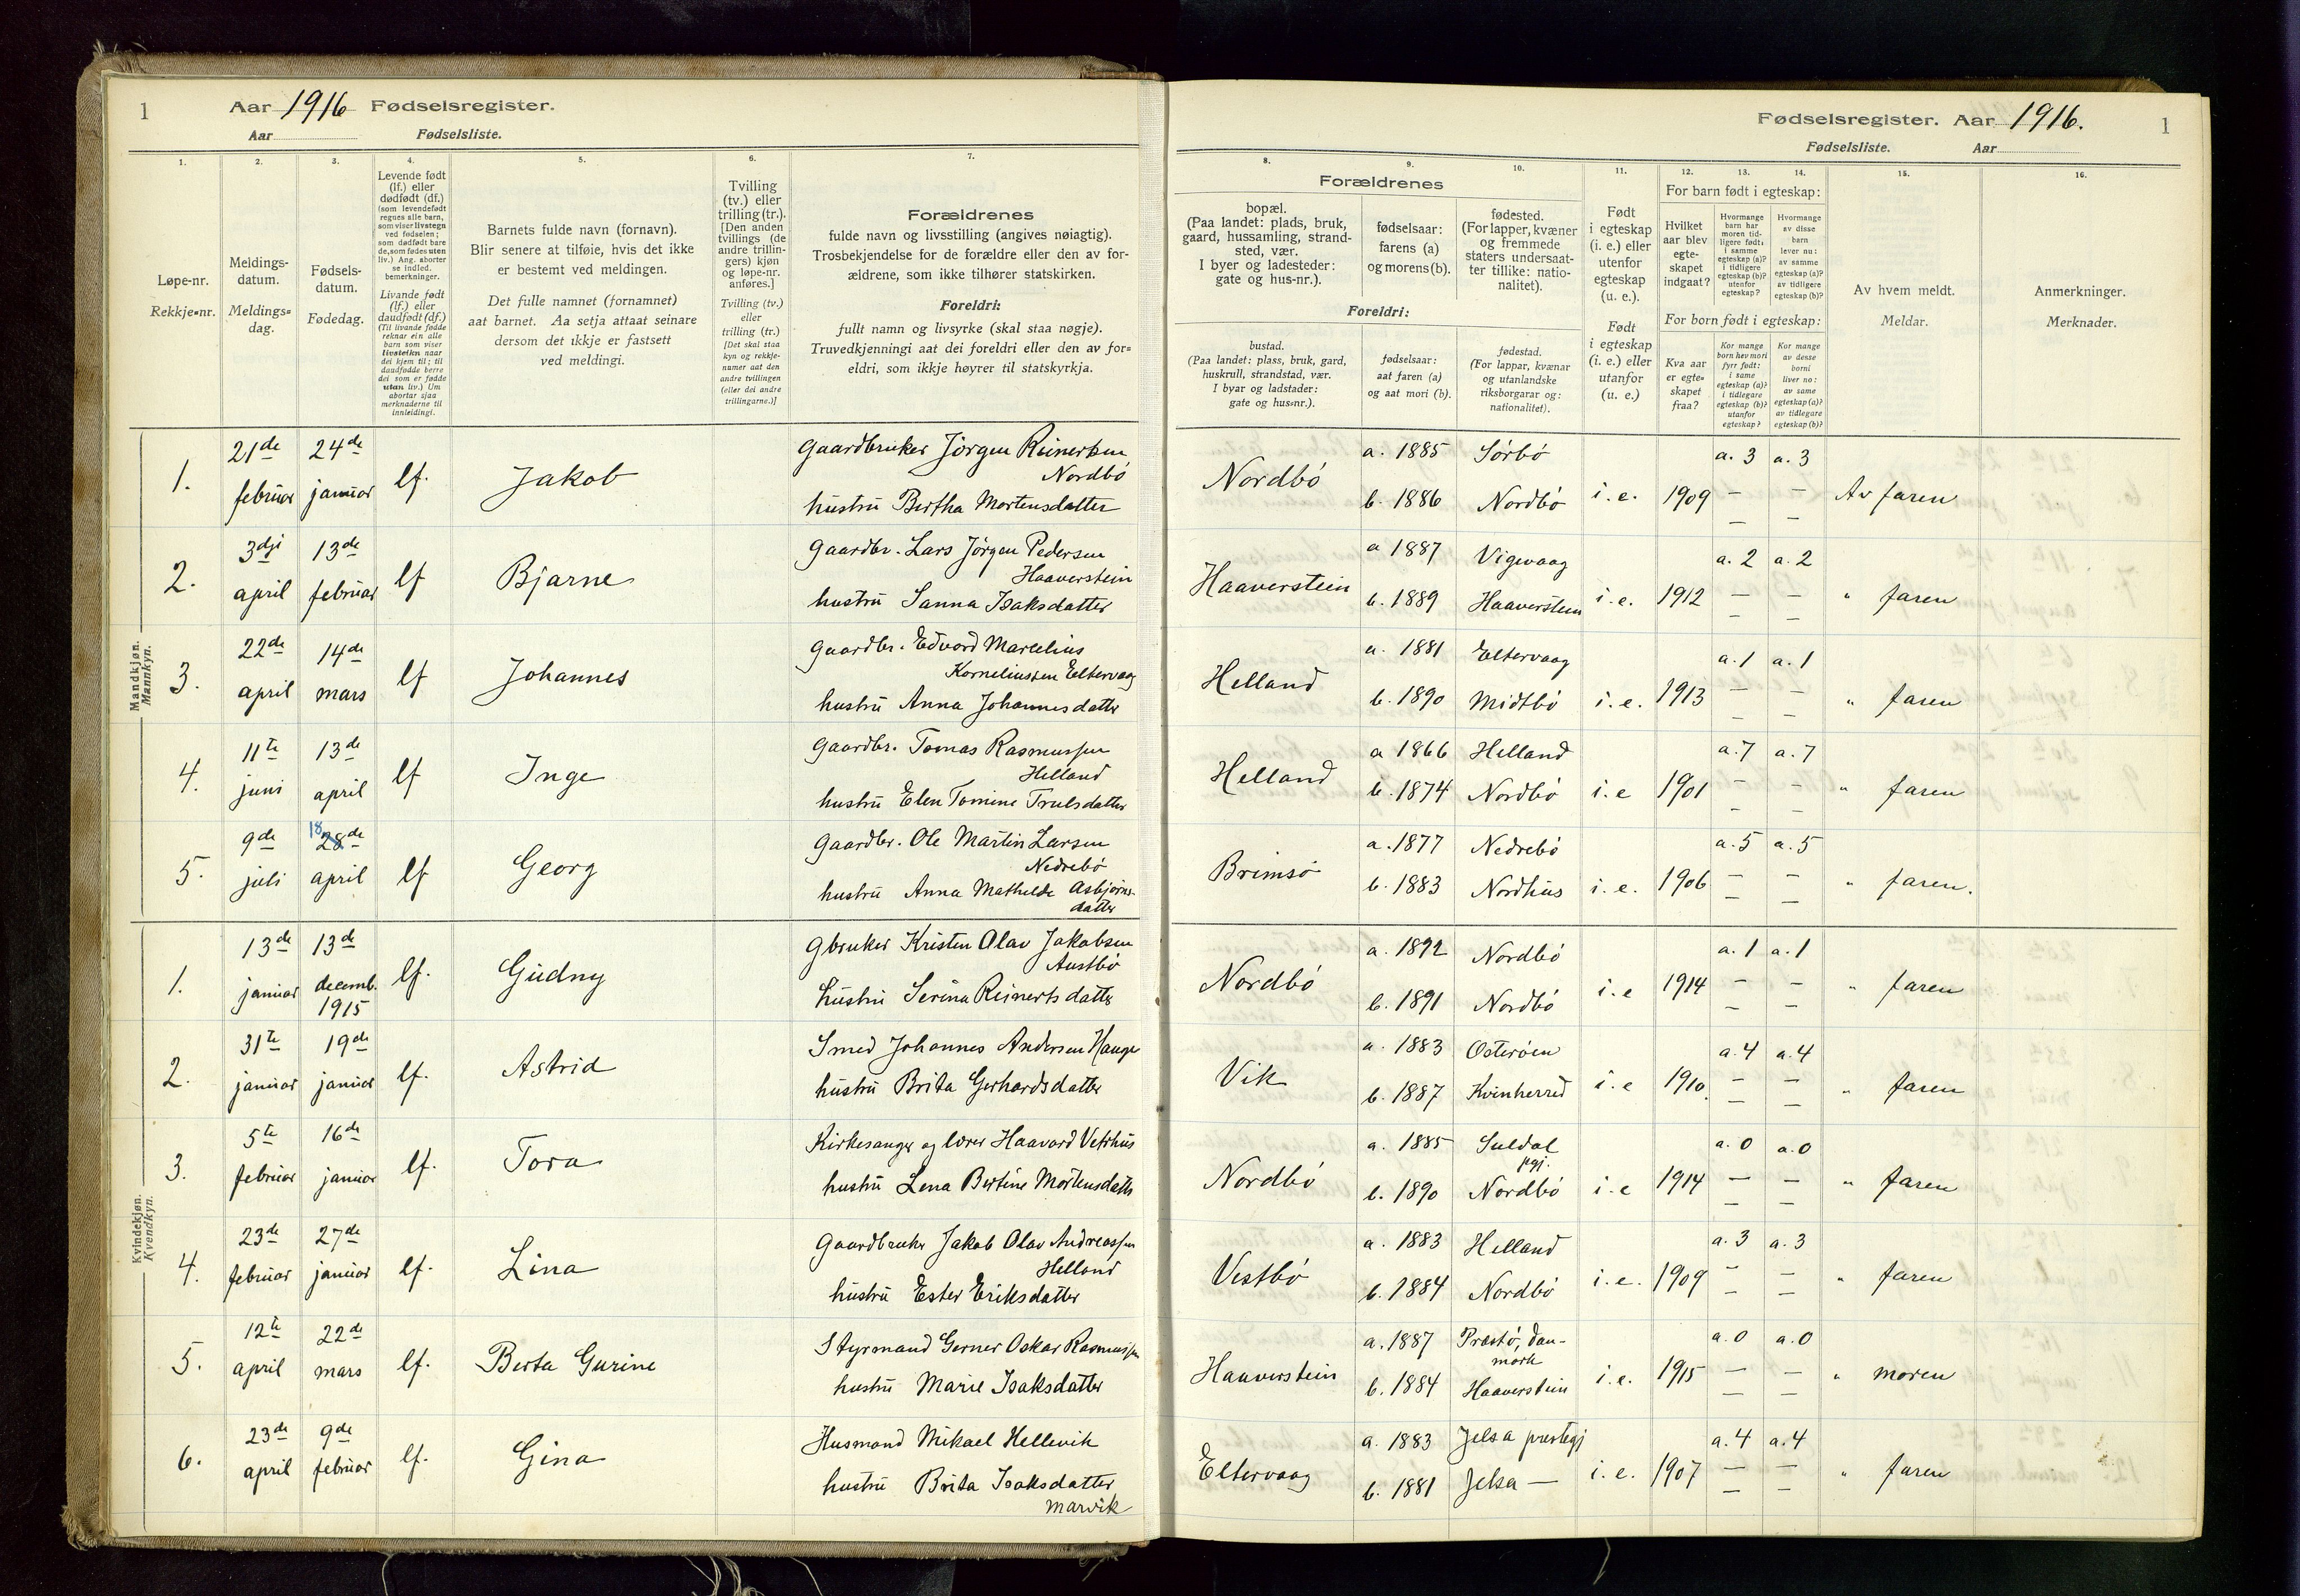 1
Aar 1916 Fødselsregister.
Aar Fødselsliste.
1.
2.
3.
4.
5.
6.
7.
Løpe-nr.
Rekkje=nr.
Meldings-
datum.
Meldings=
dag.
Fødsels-
datum.
Fødedag.
Levende født
(lf.) eller
dødfødt (df.)
(som levendefødt
regnes alle barn,
som viser livstegn
ved fødselen;
som dødfødt bare
de, som fødes uten
liv.) Ang. aborter
se indled.
bemerkninger.
Livande født
(lf.) eller
daudfødt (df.)
(Til livande fødde
reknar ein alle
barn som viser
livsteikn naar
dei kjem til; til
daudfødde berre
dei som er fødde
utan liv.) Um
abortar sjaa
merknaderne til
innleidingi.
Barnets fulde navn (fornavn).
Blir senere at tilføie, hvis det ikke
er bestemt ved meldingen.
Det fulle namnet (fornamnet)
aat barnet. Aa setja attaat seinare
dersom det ikkje er fastsett
ved meldingi.
Tvilling
(tv.) eller
trilling (tr.).
[Den anden
tvillings (de
andre trillin-
gers) kjøn
og løpe-nr.
anføres.]
Tvilling (tv.)
eller
trilling (tr.)
[Det skal staa
kyn og rekkje-
numer aat den
andre tvillingen
(eller dei andre
trillingarne.)]
Forældrenes
fulde navn og livsstilling (angives nøiagtig).
Trosbekjendelse for de forældre eller den av for-
ældrene, som ikke tilhører statskirken.
Foreldri:
fullt namn og livsyrke (skal staa nøgje).
Truvedkjenningi aat dei foreldri eller den av for=
eldri, som ikkje høyrer til statskyrkja.
Mandkjøn.
Mannkyn.
1.
21de
februar
24de
januar
lf.
Jakob
Gaardbruker Jörgen Reinertsen
Nordbö
hustru Bertha Mortensdatter
2.
3dji
april
13de
februar
lf
Bjarne
Gaardbr. Lars Jörgen Pedersen
Haaverstein
hustru Sanna Isaksdatter
3.
22de
april
14de
mars
lf
Johannes
Gaardbr. Edvard Marselius
Korneliussen Eltervaag
hustru Anna Johannesdatter
4.
11te
juni
13de
april
lf
Inge
Gaardbr. Tomas Rasmussen
Helland
hustru Elen Tomine Trulsdatter
5.
9de
juli
18 28de
april
lf
Georg
Gaardbr. Ole Martin Larsen
Nedrebö
hustru Anna Mathilde Asbjörns-
datter
Kvindekjøn.
Kvendkyn.
1.
13de
januar
13de
decemb.
1915
lf.
Gudny
Gbruker Kristen Olav Jakobsen
Austbö
hustru Serina Reinertsdatter
2.
31te
januar
19de
januar
lf.
Astrid
Smed Johannes Andersen Hauge
hustru Brita Gerhardsdatter
3.
5te
februar
16de
januar
lf.
Tora
Kirkesanger og lærer Haavard Vetrhus
hustru Lena Bertine Mortensdatter
4.
23de
februar
27de
januar
lf.
Lina
Gaardbruker Jakob Olav Andreassen
Helland
hustru Ester Eriksdatter
5.
12te
april
22de
mars
lf.
Berta Gurine
Styrmand Gerner Oskar Rasmussen
hustru Marie Isaksdatter
6.
23de
april
9de
februar
lf.
Gina
Husmand Mikael Hellevik
hustru Brita Isaksdatter
Marvik
Fødselsregister. Aar 1916.
1
Fødselsliste. Aar
8.
9.
10.
11.
12.
13.
14.
15.
16.
Forældrenes
bopæl.
(Paa landet: plads, bruk,
gaard, hussamling, strand-
sted, vær.
I byer og ladesteder:
gate og hus-nr.).
fødselsaar:
farens (a)
og morens (b).
fødested.
(For lapper, kvæner
og fremmede
staters undersaat-
ter tillike: natio-
nalitet).
Foreldri:
bustad.
(Paa landet: plass, bruk, gard,
huskrull, strandstad, vær.
I byar og ladstader:
gate og hus=nr.).
fødselsaar:
aat faren (a)
og aat mori (b).
fødestad.
(For lappar, kvænar
og utanlandske
riksborgarar og:
nationalitet).
Født
i egteskap
(i. e.) eller
utenfor
egteskap
(u. e.).
Født
i egteskap
(i. e.) eller
utanfor
(u. e.)
For barn født i egteskap:
Hvilket
aar blev
egte-
skapet
indgaat?
Hvormange
barn har
moren tid-
ligere født:
i samme
egteskap (a)?
i tidligere
egteskap (b)?
utenfor
egteskap?
Hvormange
av disse
barn
lever nu:
av samme
egteskap (a)?
av tidligere
egteskap (b)?
For born født i egteskap:
Kva aar
er egte=
skapet
fraa?
Kor mange
born hev mori
fyrr født:
i same
egteskap (a)?
i tidlegare
egteskap (b)?
utanfor
egteskap?
Kor mange
av desse
borni
liver no:
av same
egteskap (a)?
av tidlegare
egteskap (b)?
Av hvem meldt.
Meldar.
Anmerkninger.
Merknader.
Nordbö
a. 1885
b. 1886
Sörbö
Nordbö
i. e.
1909
a. 3
–
–
a. 3
–
–
Av faren
Haaverstein
a 1887
b. 1889
Vigevaag
Haaverstein
i. e.
1912
a. 2
–
–
a. 2
–
–
" faren
Helland
a. 1881
b. 1890
Eltervaag
Midtbö
i. e.
1913
a. 1
–
–
a. 1
–
–
" faren
Helland
a 1866
b. 1874
Helland
Nordbö
i. e
1901
a. 7
–
–
a. 7
–
–
" faren
Brimsö
a. 1877
b. 1883
Nedrebö
Nordhus
i. e.
1906
a. 5
–
–
a. 5
–
–
" faren.
Nordbö
a. 1892
b. 1891
Nordbö
Nordbö
i. e
1914
a. 1
–
–
a. 1
–
–
" faren
Vik
a. 1883
b. 1887
Osteröen
Kvinherred
i. e
1910.
a. 4
–
–
a. 4
–
–
" faren
Nordbö
a. 1885
b. 1890
Suldal
pgj.
Nordbö
i. e
1914
a. 0
–
–
a. 0
–
–
" faren
Vestbö
a. 1883
b. 1884
Helland
Nordbö
i. e.
1909
a. 3
–
–
a. 3
–
–
" faren
Haaverstein
a. 1887
b. 1884
Præstö, Dan-
mark
Haaverstein
i. e.
1915
a. 0
–
–
a. 0
–
–
" moren
Eltervaag
a. 1883
b. 1881
Jelsa prestegj
Jelsa –
i. e.
1907
a. 4
–
–
a. 4
–
–
" faren